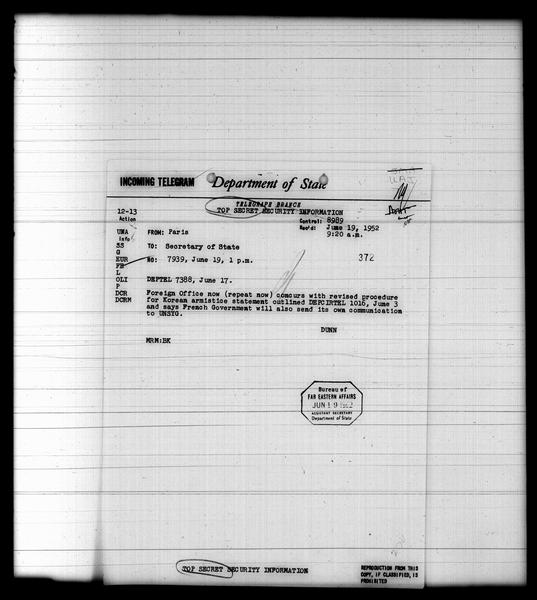 INCOMING TELEGRAM Department of State
TELEGRAPH BRANCH
TOP SECRET SECURITY INFORMATION
12-13
Action
Control: 8989
Rec'd: June 19, 1952
9:20 a.m.
UNA
Info
SS
G
EUR
FE
L
OLI
P
DCR
DCRM
FROM: Paris
TO: Secretary of State
NO: 7939, June 19, 1 p.m.
372
DEPTEL 7388, June 17.
Foreign Office now (repeat now) concurs with revised procedure
for Korean armistice statement outlined DEPCIRTEL 1016, June 3
and says French Government will also send its own communication
to UNSYG.
DUNN
MRM:BK
Bureau of
FAR EASTERN AFFAIRS
JUN 19 1952
ASSISTANT SECRETARY
Department of State
TOP SECRET SECURITY INFORMATION
REPRODUCTION FROM THIS
COPY, IF CLASSIFIED, IS
PROHIBITED